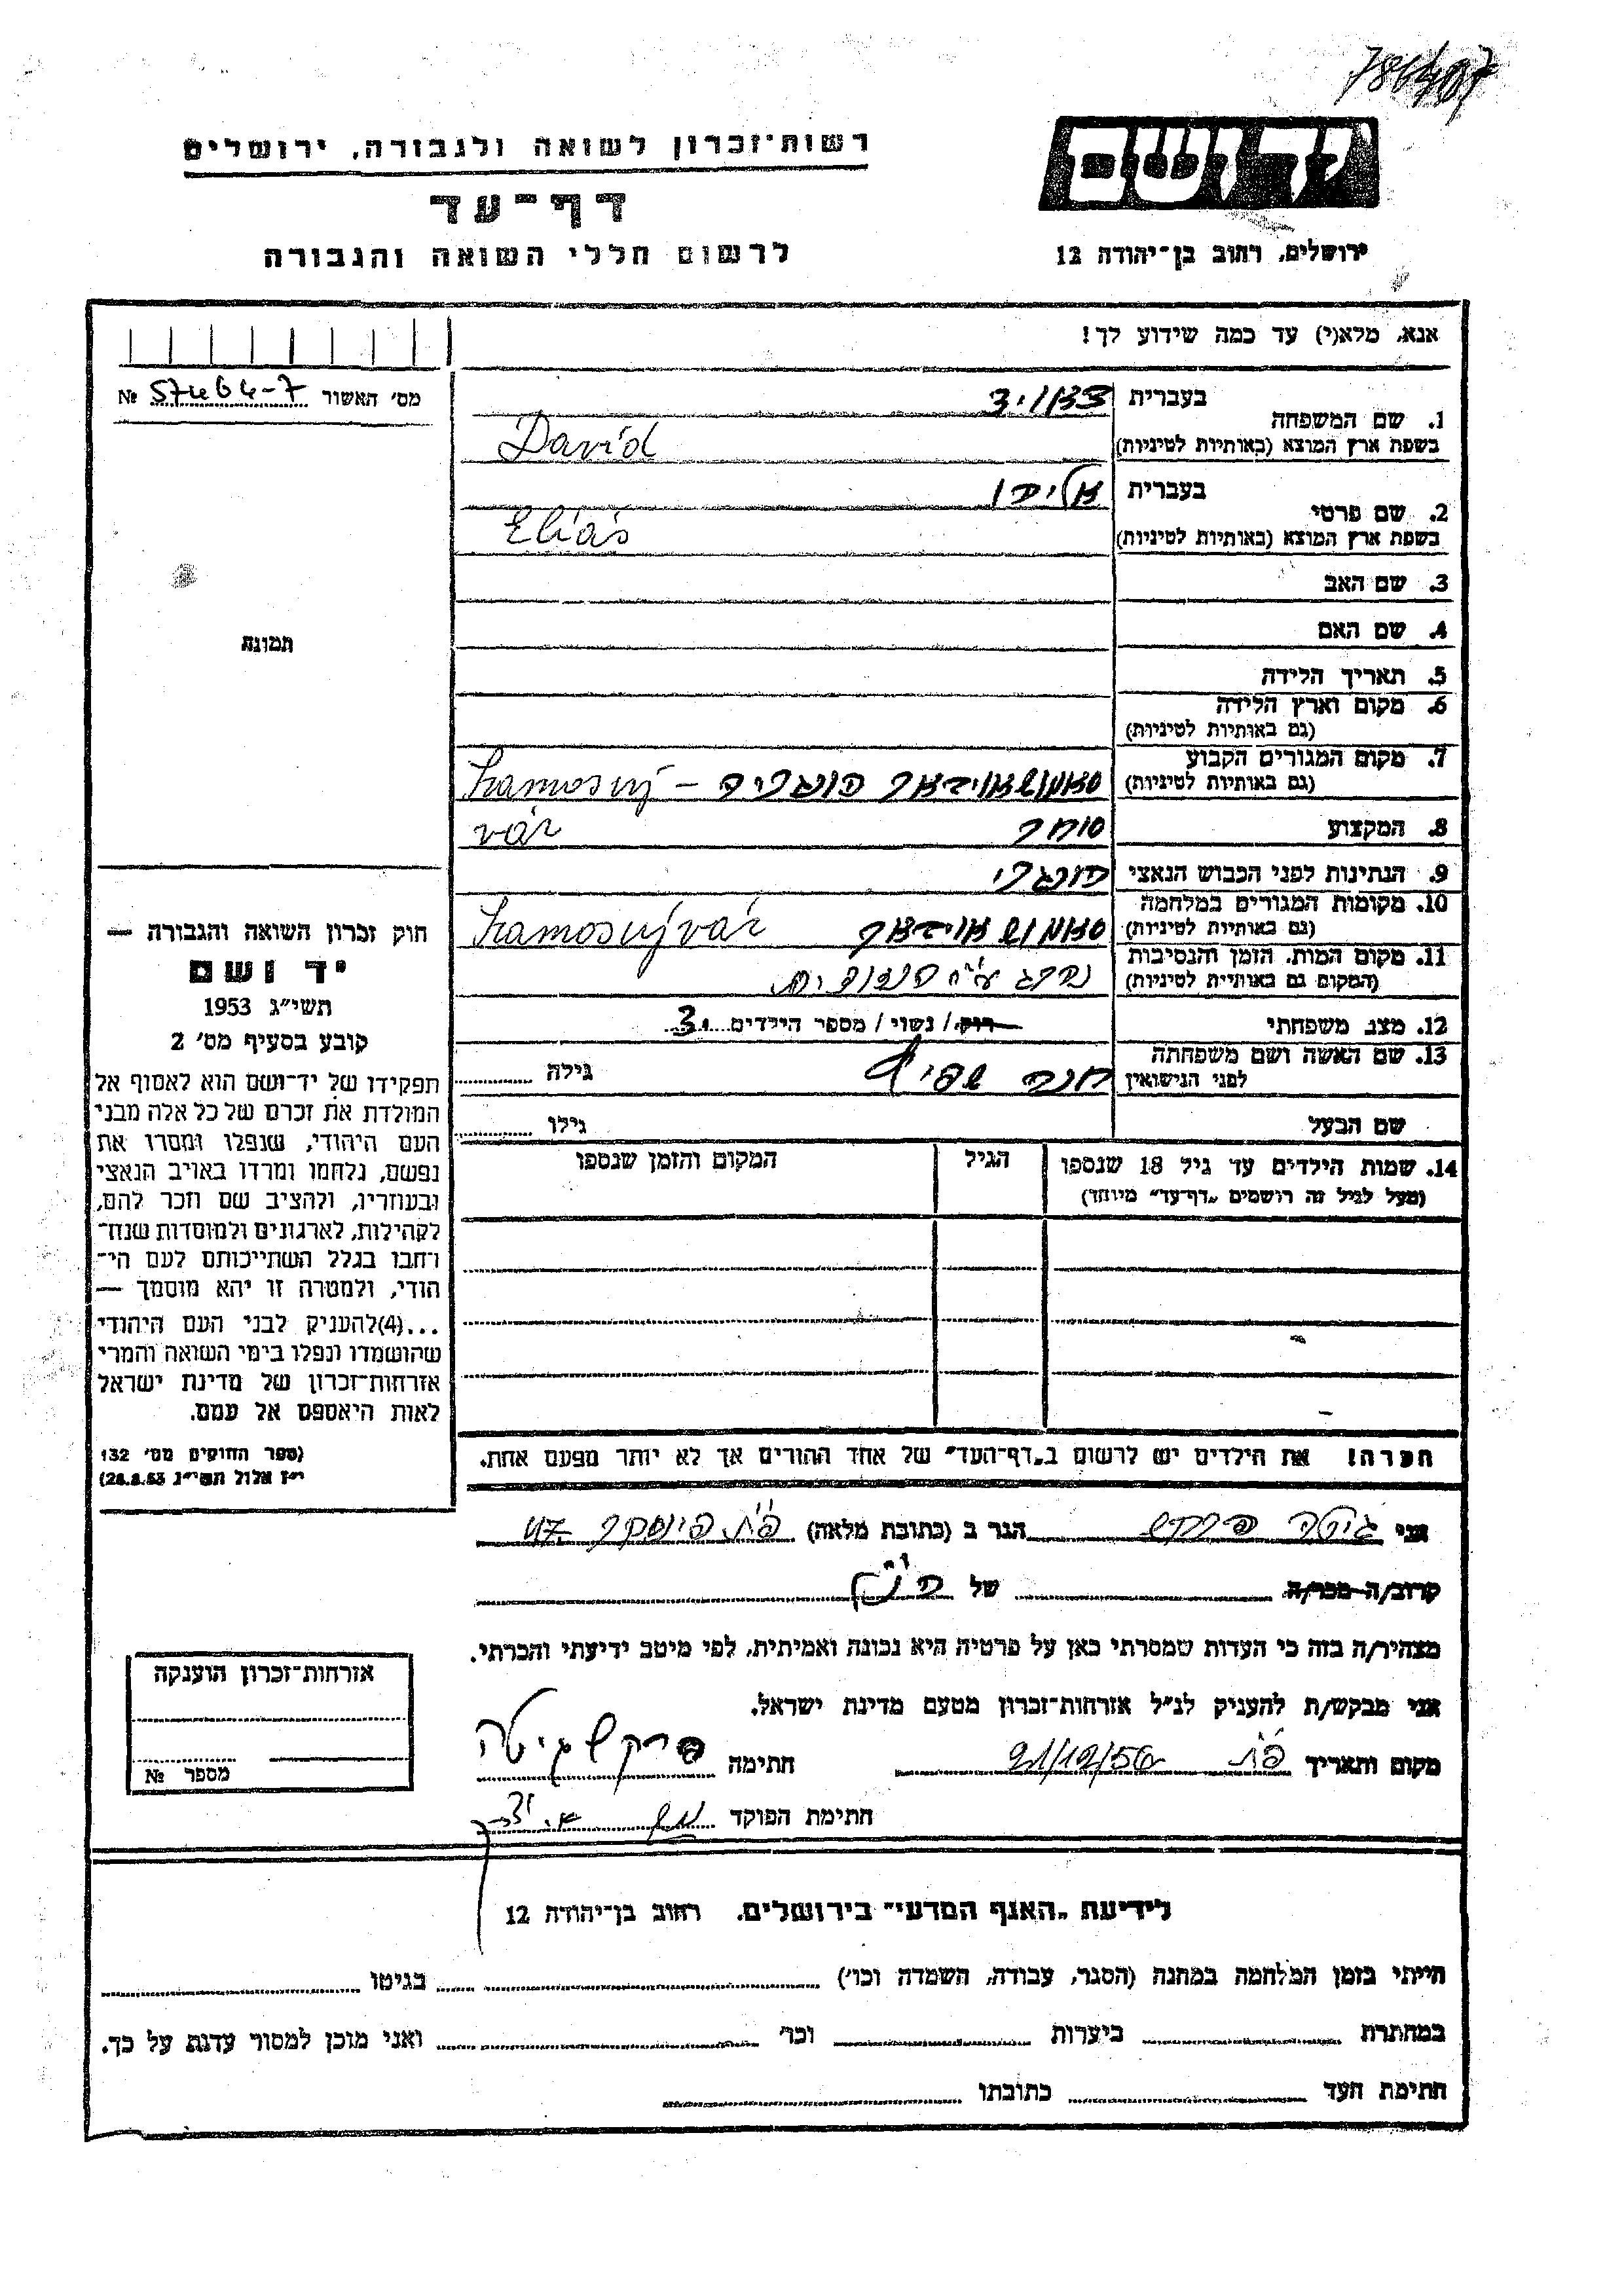 רשות־זכרון לשואה ולגבורה, ירושלים
יד ושם
דף־עד
לרשום חללי השואה והגבורה
ירושלים, רחוב בן־יהודה 12
אנא, מלא(י) עד כמה שידוע לך!
מס' האשור № 57464-7
1. שם המשפחה
בעברית דאויד
בשפת ארץ המוצא (באותיות לטיניות) David
2. שם פרטי
בעברית אליהו
בשפת ארץ המוצא (באותיות לטיניות) Eliás
3. שם האב
4. שם האם
5. תאריך הלידה
6. מקום וארץ הלידה
(גם באותיות לטיניות)
7. מקום המגורים הקבוע
(גם באותיות לטיניות) סאמושאויבאר הונגריה – Szamosúj
vár
8. המקצוע סוחר
9. הנתינות לפני הכבוש הנאצי הונגרי
10. מקומות המגורים במלחמה
(גם באותיות לטיניות) סאמושאויבאר Szamosujvár
11. מקום המות, הזמן והנסיבות
(המקום גם באותיות לטיניות) נהרג ע"י
12. מצב משפחתי רוק / נשוי / מספר הילדים 3
13. שם האשה ושם משפחתה
לפני הנישואין חנה גילה
שם הבעל גילו
14. שמות הילדים עד גיל 18 שנספו
(מעל לגיל זה רושמים „דף־עד” מיוחד)
הגיל
המקום והזמן שנספו
תמונה
חוק זכרון השואה והגבורה —
יד ושם
תשי״ג 1953
קובע בסעיף מס' 2
תפקידו של יד־ושם הוא לאסוף אל
המולדת את זכרם של כל אלה מבני
העם היהודי, שנפלו ומסרו את
נפשם, נלחמו ומרדו באויב הנאצי
ובעוזריו, ולהציב שם וזכר להם,
לקהילות, לארגונים ולמוסדות שנח־
רבו בגלל השתייכותם לעם הי־
הודי, ולמטרה זו יהא מוסמך —
...(4)להעניק לבני העם היהודי
שהושמדו ונפלו בימי השואה והמרי
אזרחות־זכרון של מדינת ישראל
לאות היאספם אל עמם.
(ספר החוקים מס' 132
י״ז אלול תשי״ג 28.8.53)
הכרה! את הילדים יש לרשום ב„דף־העד” של אחד ההורים אך לא יותר מפעם אחת.
אני גיטה הגר ב (כתובת מלאה) פ"ת פינסקר 47
קרוב/ה מכר/ה של
מצהיר/ה בזה כי העדות שמסרתי כאן על פרטיה היא נכונה ואמיתית, לפי מיטב ידיעתי והכרתי.
אני מבקש/ת להעניק לנ״ל אזרחות־זכרון מטעם מדינת ישראל.
מקום ותאריך פ"ת 21/12/56 חתימה גיטה
חתימת הפוקד
אזרחות־זכרון הוענקה
מספר №
לידיעת „האגף המדעי” בירושלים, רחוב בן־יהודה 12
הייתי בזמן המלחמה במחנה (הסגר, עבודה, השמדה וכו') בגיטו
במחתרת ביערות וכו' ואני מוכן למסור עדות על כך.
חתימת העד כתובתו